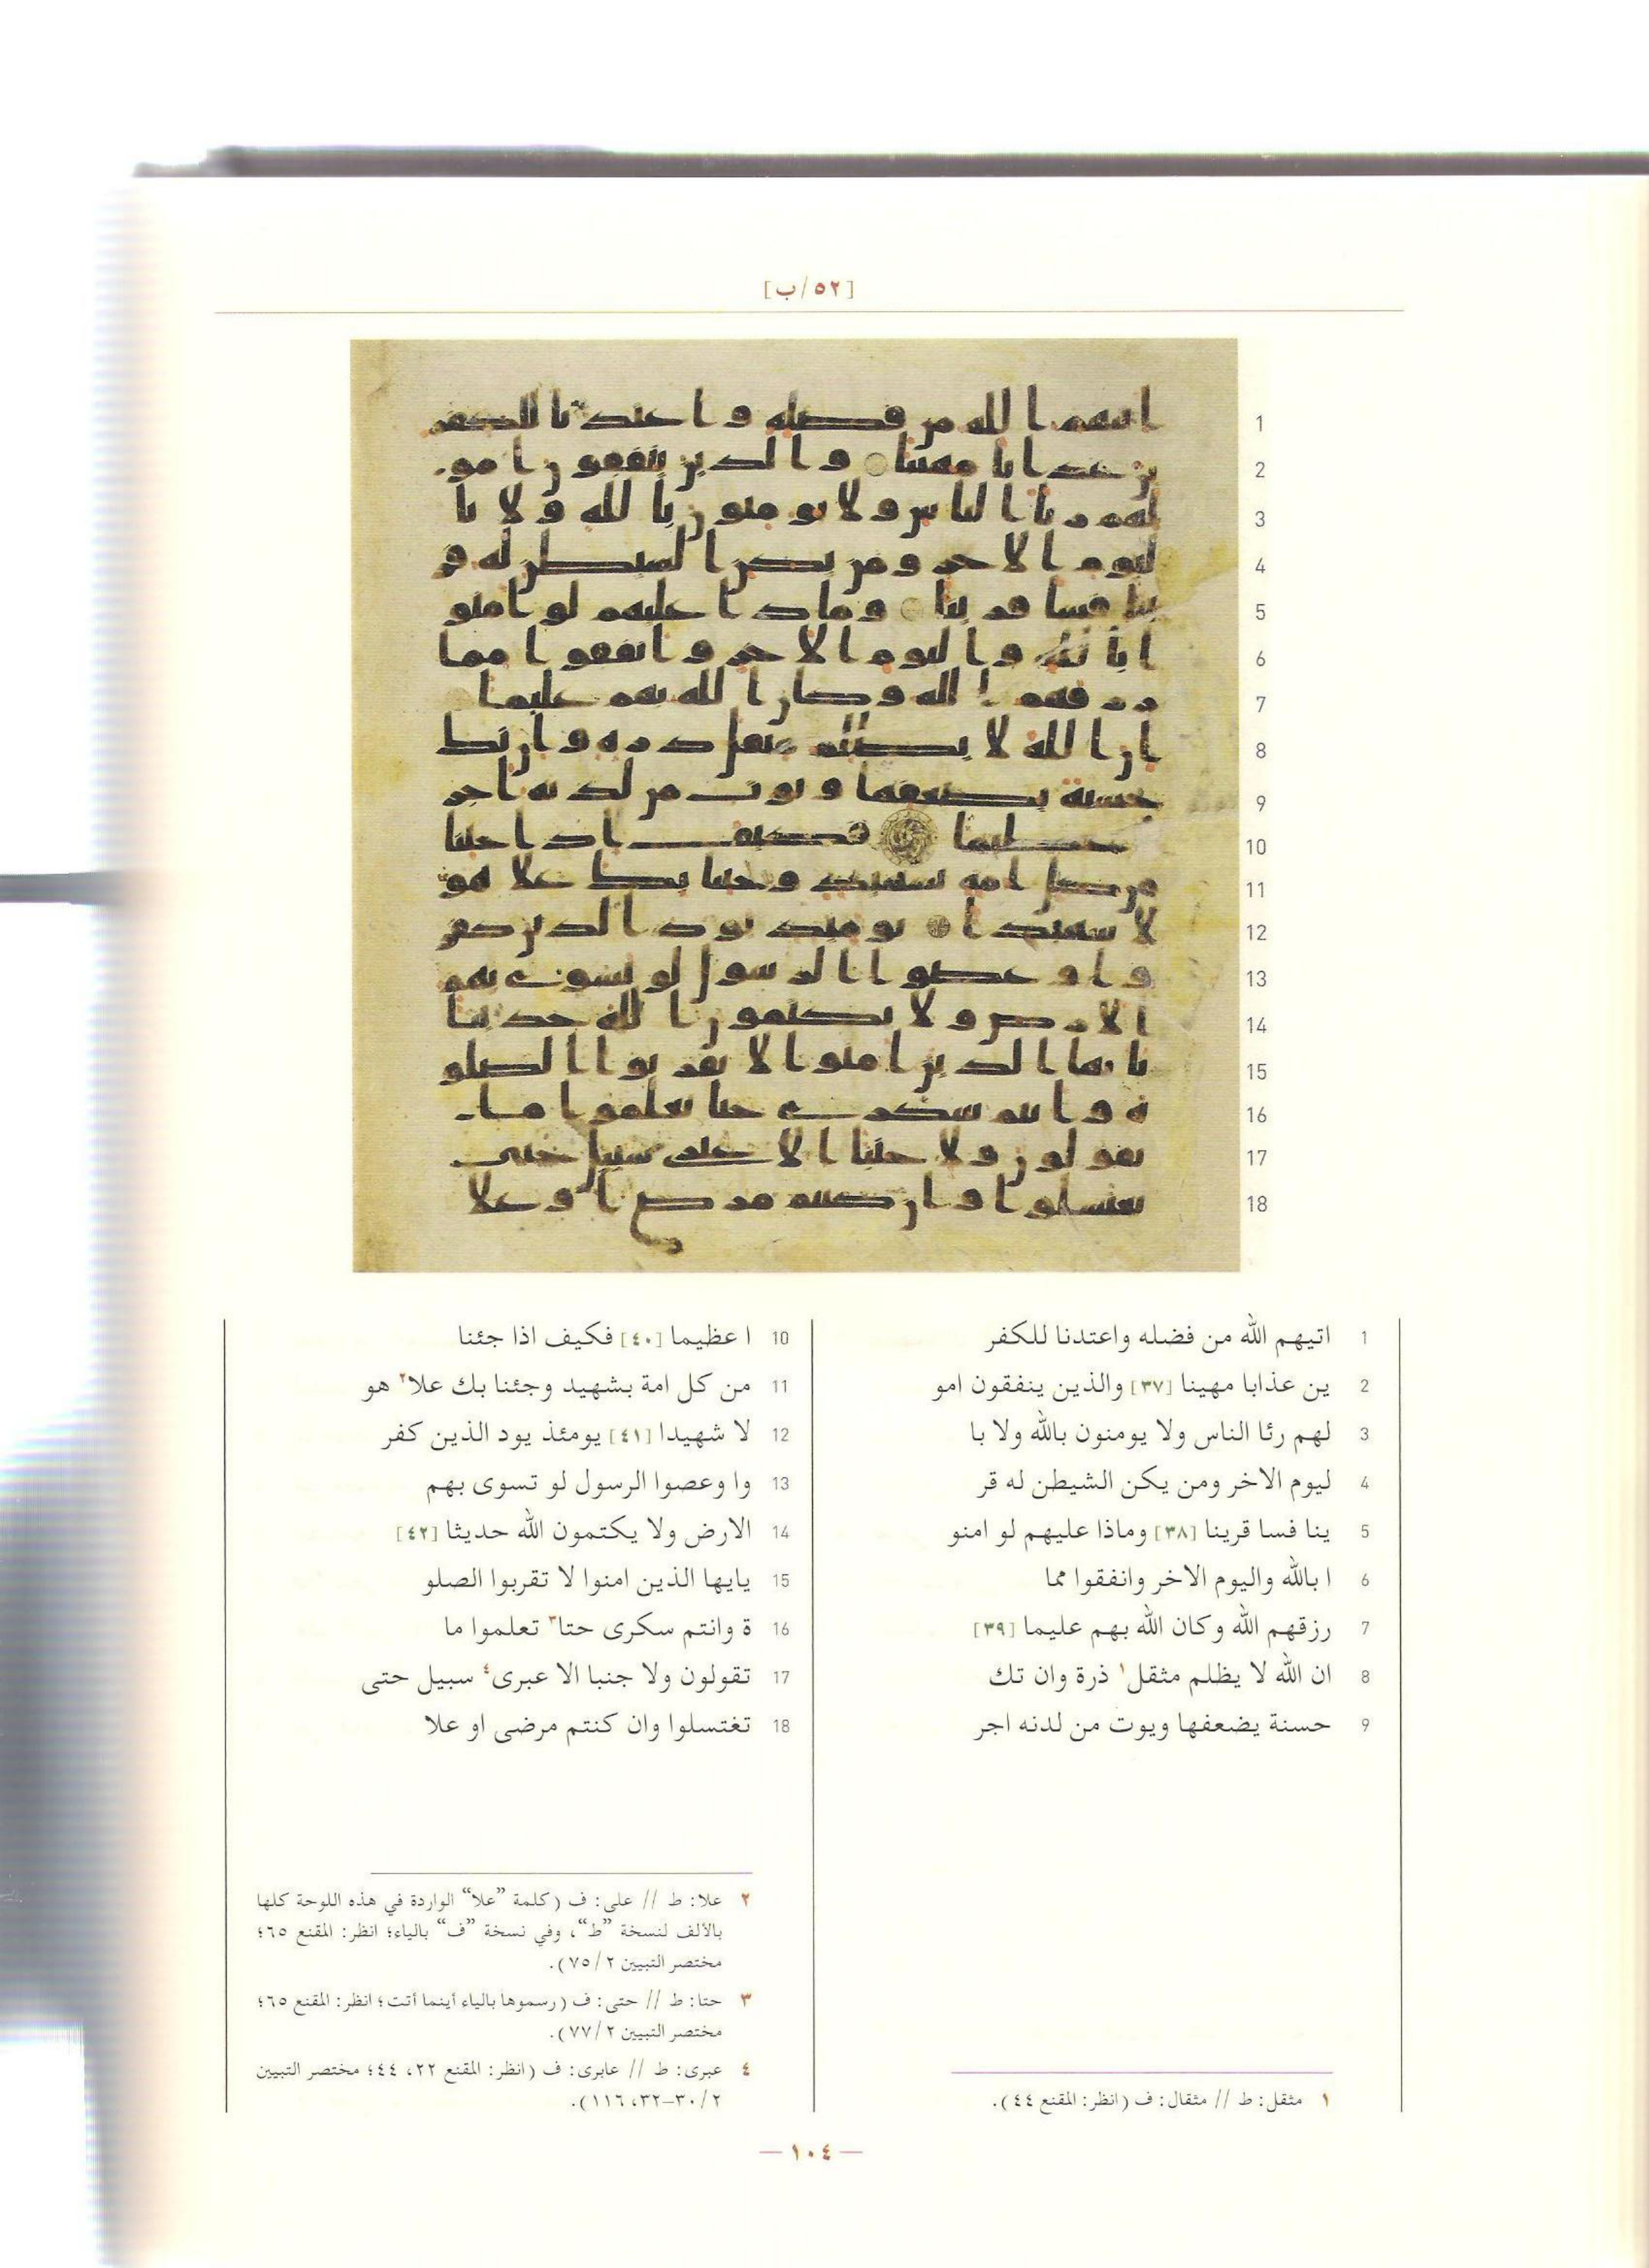 [٥٢/ب]
1 اتيهم الله من فضله واعتدنا للكفر
2 ين عذابا مهينا [٣٧] والذين ينفقون امو
3 لهم رئا الناس ولا يومنون بالله ولا با
4 ليوم الاخر ومن يكن الشيطن له قر
5 ينا فسا قرينا [٣٨] وماذا عليهم لو امنو
6 ا بالله واليوم الاخر وانفقوا مما
7 رزقهم الله وكان الله بهم عليما [٣٩]
8 ان الله لا يظلم مثقل١ ذرة وان تك
9 حسنة يضعفها ويوت من لدنه اجر
10 ا عظيما [٤٠] فكيف اذا جئنا
11 من كل امة بشهيد وجئنا بك علا٢ هو
12 لا شهيدا [٤١] يومئذ يود الذين كفر
13 وا وعصوا الرسول لو تسوى بهم
14 الارض ولا يكتمون الله حديثا [٤٢]
15 يايها الذين امنوا لا تقربوا الصلو
16 ة وانتم سكرى حتا٣ تعلموا ما
17 تقولون ولا جنبا الا عبرى٤ سبيل حتى
18 تغتسلوا وان كنتم مرضى او علا
١ مثقل: ط // مثقال: ف (انظر: المقنع ٤٤).
٢ علا: ط // على: ف (كلمة ”علا“ الواردة في هذه اللوحة كلها
بالألف لنسخة ”ط“، وفي نسخة ”ف“ بالياء؛ انظر: المقنع ٦٥؛
مختصر التبيين ٧٥/٢).
٣ حتا: ط // حتى: ف (رسموها بالياء أينما أتت؛ انظر: المقنع ٦٥؛
مختصر التبيين ٧٧/٢).
٤ عبرى: ط // عابرى: ف (انظر: المقنع ٢٢، ٤٤؛ مختصر التبيين
٣٠/٢-٣٢، ١١٦).
— ١٠٤ —